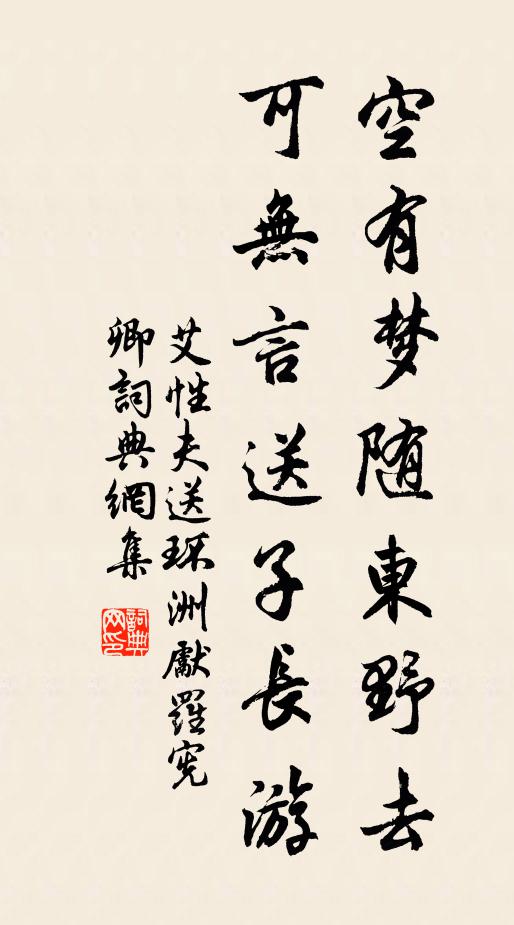 空有梦随東野去
可無言送子長游
艾性夫送琢洲獻羅寃
卿詞典網集
詞典网印